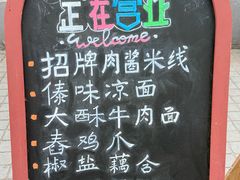 正在营业
welcome
招牌肉酱米线
傣味凉面
大酥牛肉面
舂鸡爪
椒盐藕合